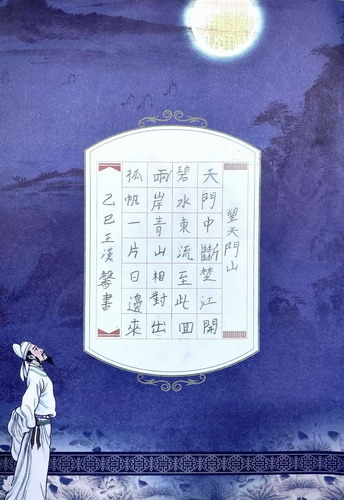 望天門山
天門中斷楚江開
碧水東流至此回
兩岸青山相對出
孤帆一片日邊來
乙巳王漢馨書